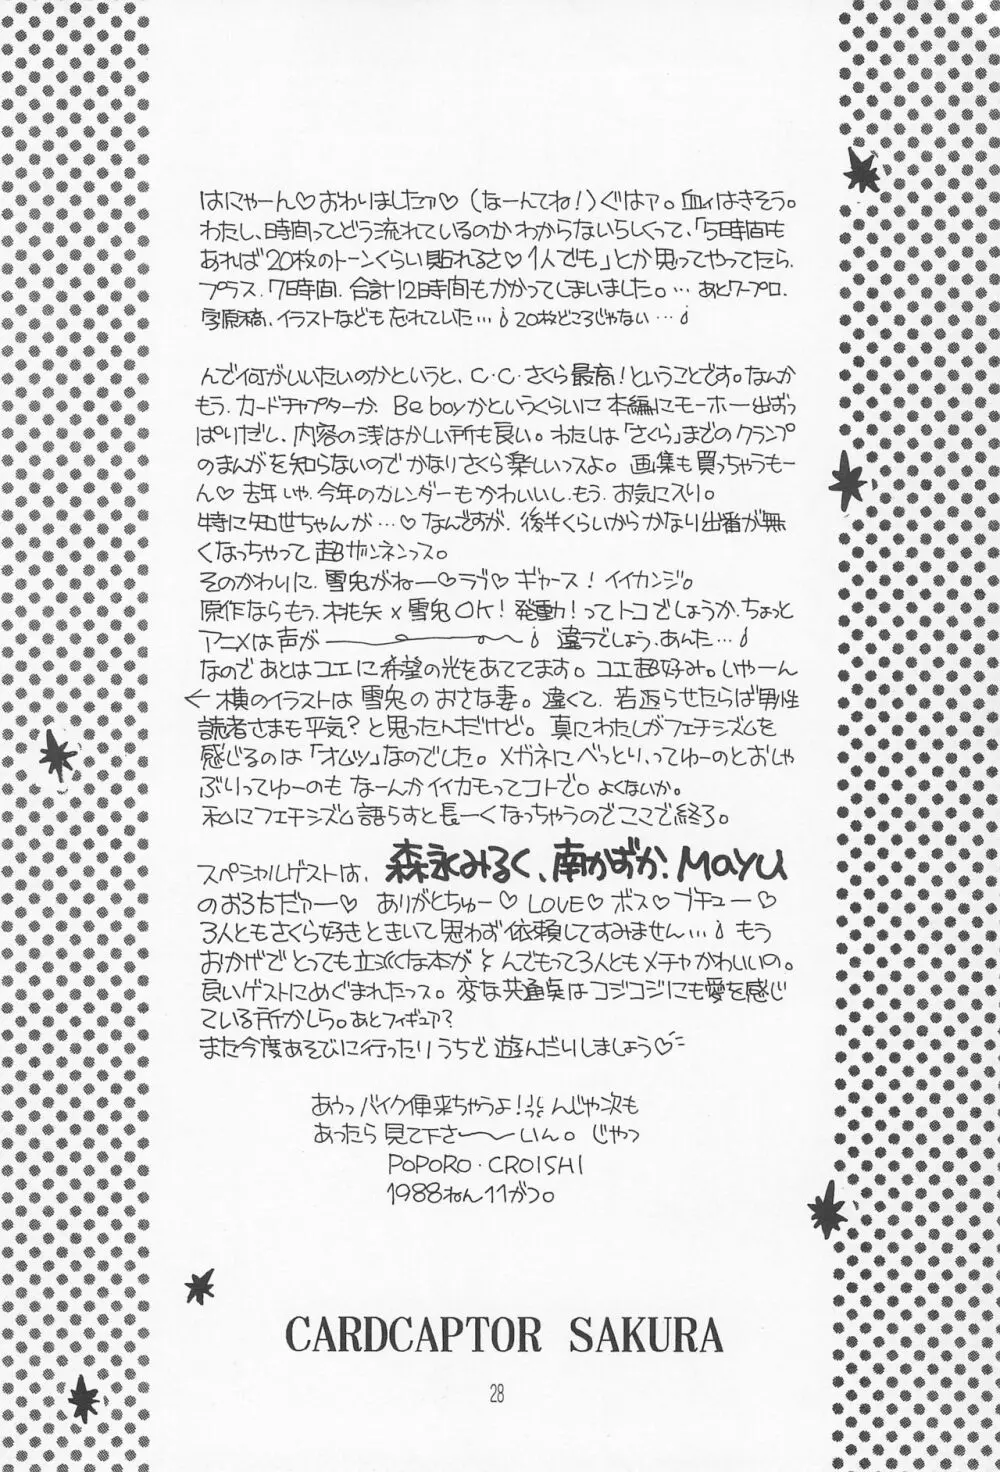 はにゃーん♡おわりましたァ♡(なーんてね!)ぐはァ。血ィはきそう。
わたし、時間ってどう流れているのかわからないらしくって、「5時間も
あれば20枚のトーンくらい貼れるさ♡1人でも」とか思ってやってたら、
プラス、7時間、合計12時間もかかってしまいました。…あとワープロ、
字原稿、イラストなども忘れていた…♪20枚どころじゃない…♪
んで何がいいたいのかというと、C・C・さくら最高!ということです。なんか
もう、カードキャプターか、Be boyかというくらいに本編にモーホー出ばっ
ぱりだし、内容の浅はかしい所も良い。わたしは「さくら」までのクランプ
のまんがを知らないのでかなりさくら楽しいっスよ。画集も買っちゃうもー
ん♡去年、いや、今年のカレンダーもかわいいし、もう、お気に入り。
特に知世ちゃんが…♡なんですが、後半くらいからかなり出番が無
くなっちゃって超ザンネンっス。
そのかわりに、雪兎がねー♡ラブ♡ギャース!イイカンジ。
原作ならもう、桃矢×雪兎OK!発動!ってトコでしょうか、ちょっと
アニメは声が――♪違うでしょう、あんた…♪
なのであとはユエに希望の光をあててます。ユエ超好み。いやーん
←横のイラストは雪兎のおさな妻。違くて、若返らせたらば男性
読者さまも平気?と思ったんだけど。真にわたしがフェチシズムを
感じるのは「オムツ」なのでした。メガネにべっとり、ってゆーのとおしゃ
ぶりってゆーのもなーんかイイカモってコトで。よくないか。
私にフェチシズム語らすと長ーくなっちゃうのでここで終了。
スペシャルゲストは、森永みるく、南かずか、Mayu
のお3方だァー♡ありがとちゅー♡LOVE♡ボス♡ブチュー♡
3人ともさくら好きときいて思わず依頼してすみません…♪もう
おかげでとっても立派な本が とんでもって3人ともメチャかわいいの。
良いゲストにめぐまれたっス。変な共通点はコジコジにも愛を感じ
ている所かしら。あとフィギュア?
また今度あそびに行ったりうちで遊んだりしましょう♡
あうっバイク便来ちゃうよ!んじゃ次も
あったら見て下さ〜いん。じゃっ
POPORO・CROISHI
1988ねん11がつ。
CARDCAPTOR SAKURA
28